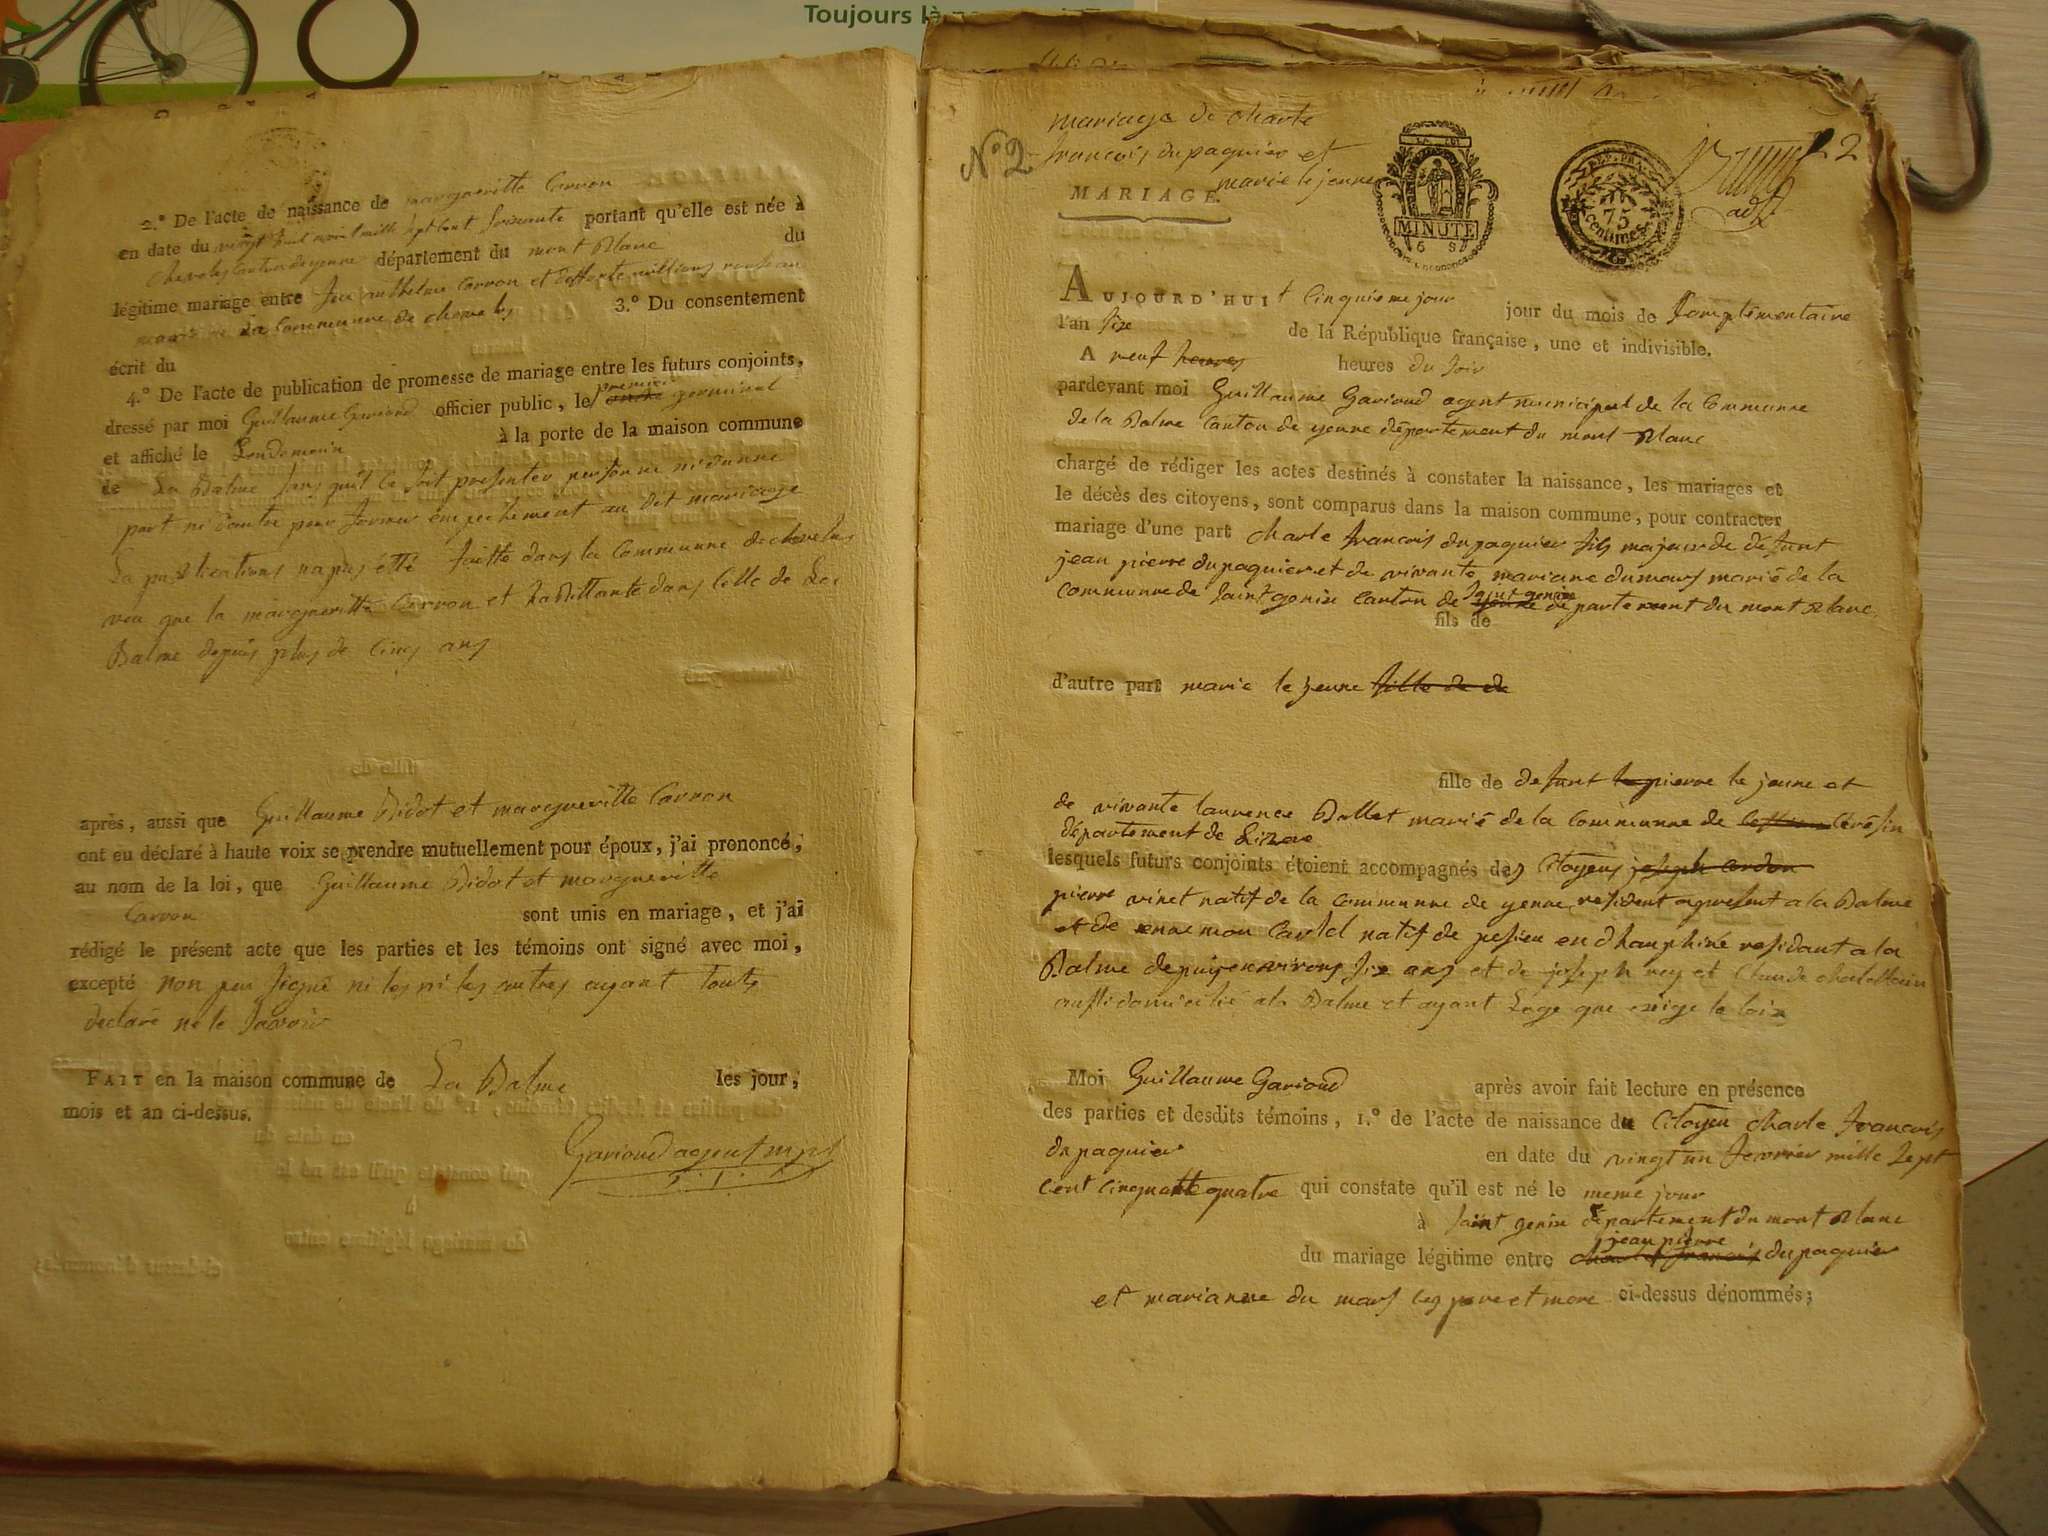 Toujours là
2.° De l'acte de naissance de margueritte Carron
en date du vingt huit avril mille sept cent soixante portant qu'elle est née à
Chevelu Canton de yenne département du mont Blanc du
légitime mariage entre Carron et
mariés de la Commune de chevelu 3.° Du consentement
écrit du
4.° De l'acte de publication de promesse de mariage entre les futurs conjoints,
premier
dressé par moi Guillaume Garioud officier public, le germinal
et affiché le Lendemain à la porte de la maison commune
de La Balme sans quil ce soit presenter personne ni dunne
part ni dautre pour former empechement au dit mariage
La publications napas étté faitte dans la Commune de chevelus
veu que la margueritte Carron et habittante dans celle de La
Balme depuis plus de cinq ans
après, aussi que Guillaume Didot et margueritte Carron
ont eu déclaré à haute voix se prendre mutuellement pour époux, j'ai prononcé,
au nom de la loi, que Guillaume Didot et margueritte
Carron sont unis en mariage, et j'ai
rédigé le présent acte que les parties et les témoins ont signé avec moi,
excepté non pas signé ni les ni les autres ayant touts
declaré ne le savoir
FAIT en la maison commune de La Balme les jour,
mois et an ci-dessus.
Garioud agent mpl
mariage de charle
N° 2 francois dupaquier et
marie le jeune
MARIAGE.
LA LOI
MINUTE
REP. FRA.
75
centimes
22
AUJOURD'HUI Cinquieme jour jour du mois de Complémentaire
l'an six de la République française, une et indivisible.
A neuf heures heures du soir
pardevant moi Guillaume Gavioud agent municipal de la Commune
de la Balme Canton de yenne département du mont Blanc
chargé de rédiger les actes destinés à constater la naissance, les mariages et
le décès des citoyens, sont comparus dans la maison commune, pour contracter
mariage d'une part charle francois dupaquier fils majeur de défunt
jean pierre dupaquier et de vivante mariane dumars marié de la
saint genix
commune de saint genix canton de yenne département du mont Blanc
fils de
d'autre part marie le jeune fille de de
fille de defunt pierre le jeune et
de vivante laurence Ballet marié de la Commune de Cérésin
département de Lizere
lesquels futurs conjoints étoient accompagnés des Citoyens joseph cardon
pierre vinet natif de la commune de yenne resident apresent a la Balme
et de natif de pesieu en dhauphiné residant a la
Balme depuis environs six ans et de joseph rey et Claude
aussi domicilié ala Balme et ayant Lage que exige la loix
Moi Guillaume Gavioud après avoir fait lecture en présence
des parties et desdits témoins, 1.° de l'acte de naissance du Citoyen charle francois
dupaquier en date du vingt un fevrier mille sept
cent cinquante quatre qui constate qu'il est né le meme jour
à saint genix département du mont Blanc
jean pierre
du mariage légitime entre dupaquier
et marianne du mars les pere et mere ci-dessus dénommés;